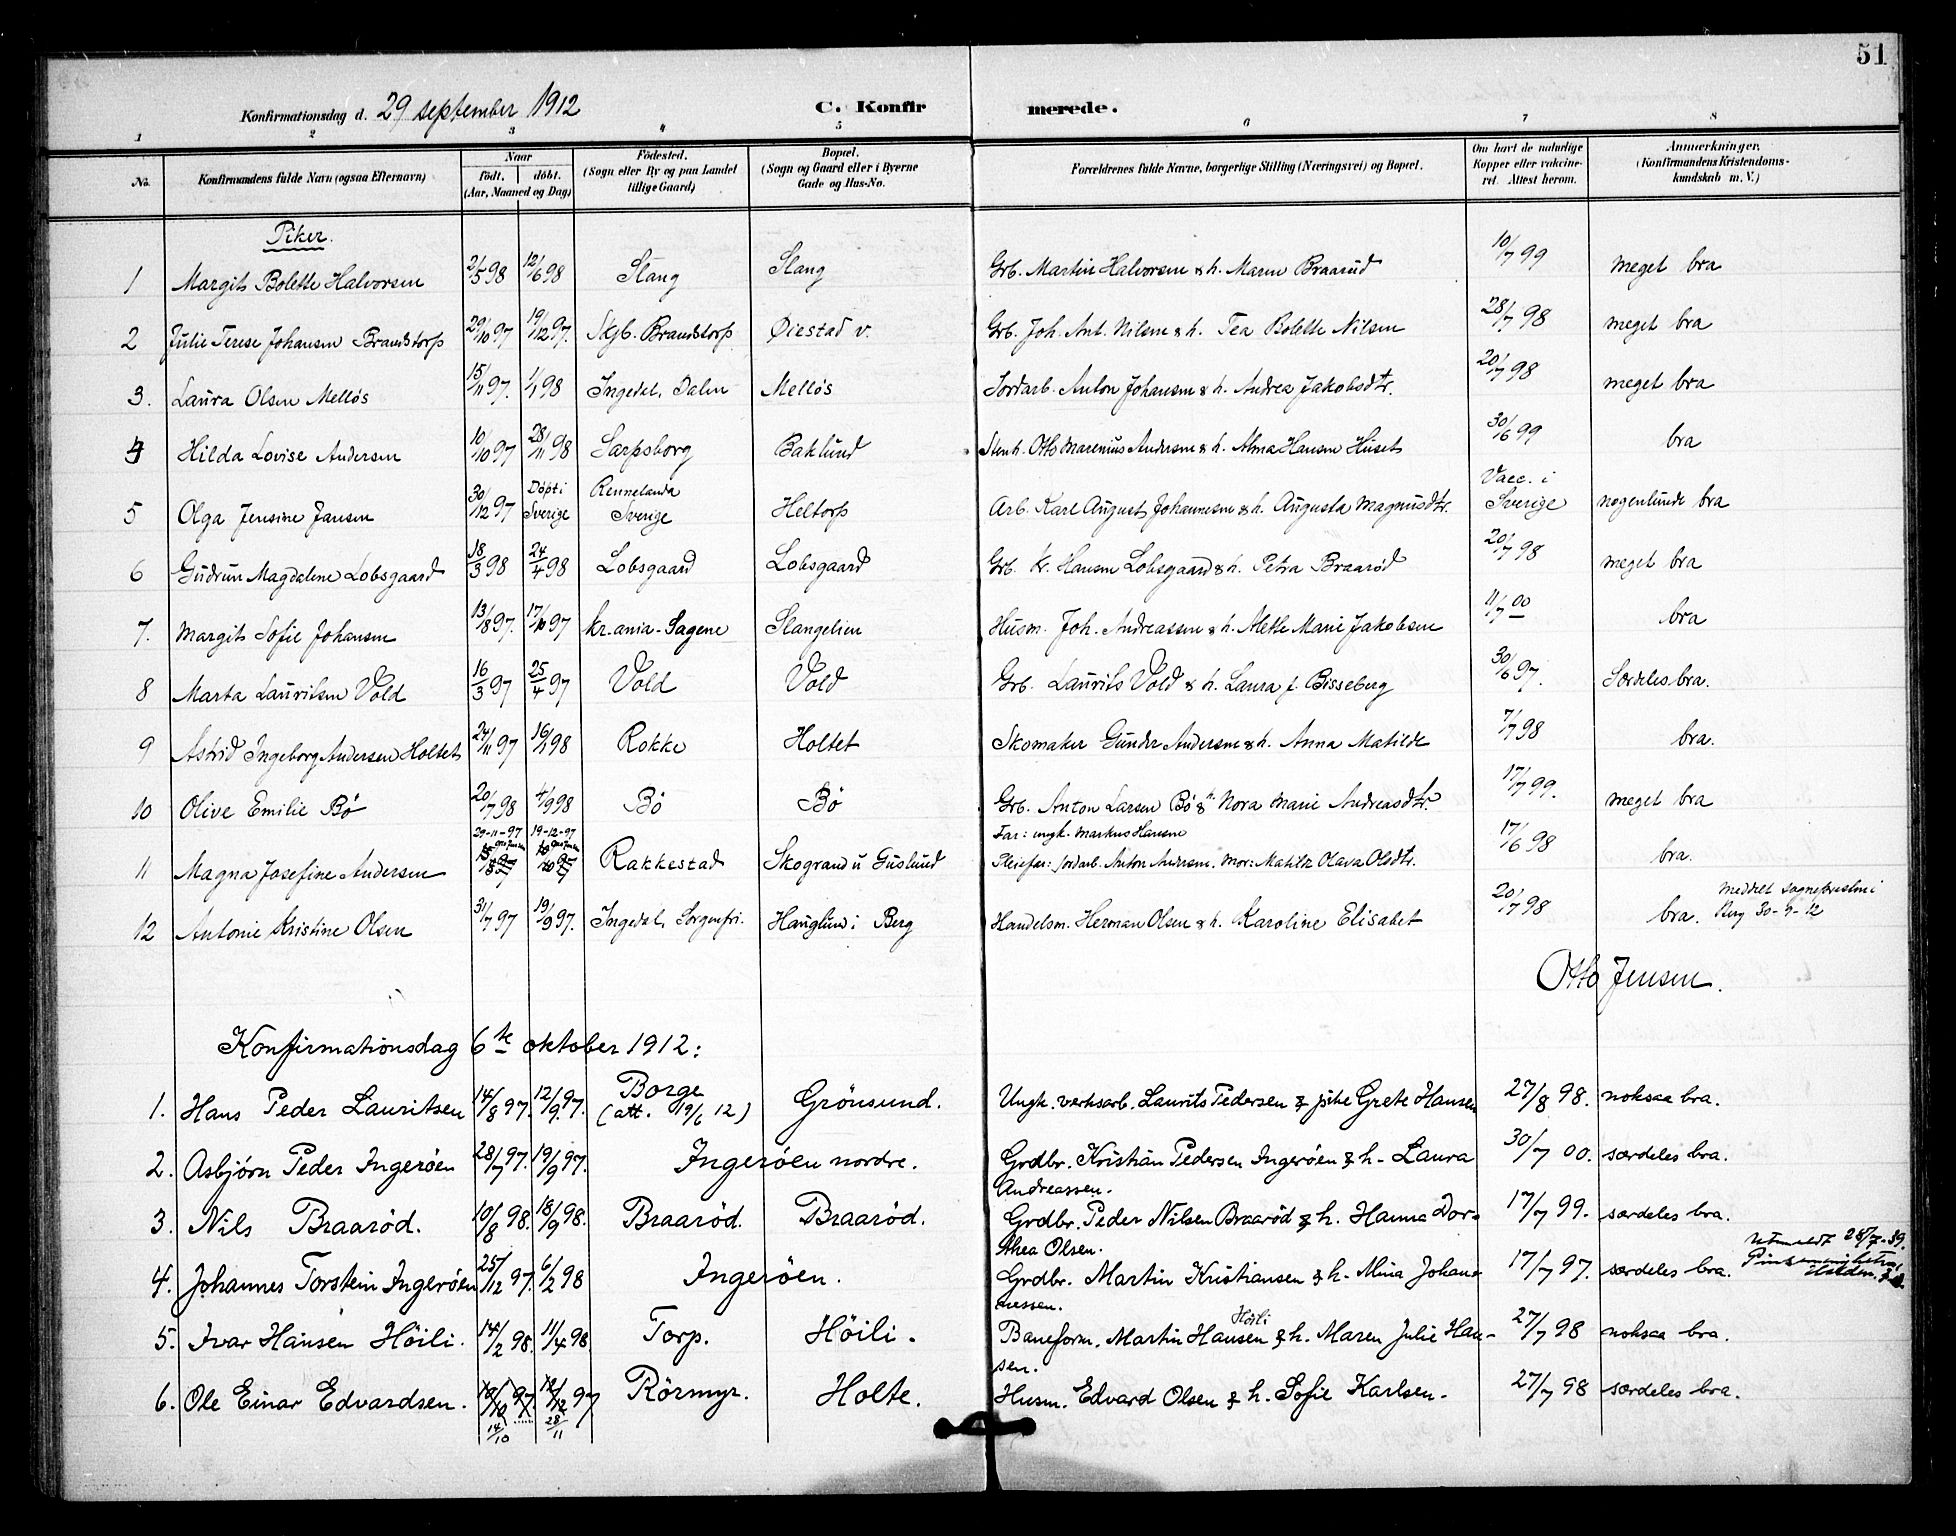 51
Konfirmationsdag d. 29 september 1912 C. Konfirmerede.
1 2 3 4 5 6 7 8
No. Konfirmandens fulde Navn (ogsaa Efternavn) Naar født. døbt. (Aar, Maaned og Dag) Fødested. (Sogn eller By og paa Landet tillige Gaard) Bopæl. (Sogn og Gaard eller i Byerne Gade og Hus-No. Forældrenes fulde Navne, borgerlige Stilling (Næringsvei) og Bopæl. Om havt de naturlige Kopper eller vaccineret. Attest herom. Anmærkninger. (Konfirmandens Kristendomskundskab m. V.)
Piker.
1 Margit Bolette Halvorsen 2/5 98 12/6 98 Stang Stang Grb. Martin Halvorsen & h. Maren Braarud 10/7 99 meget bra
2 Julie Terese Johansen Brandstorp 29/10 97 19/12 97. Skjb. Brandstorp Øiestad v. Grb. Joh. Ant. Nilsen & h. Tea Bolette Nilsen 28/7 98 meget bra
3. Laura Olsen Melløs 15/11 97. 1/1 98 Ingedal, Dalen Melløs Jordarb. Anton Johansen & h. Andrea Jakobsdtr. 20/7 98 meget bra
4 Hilda Lovise Andersen 10/10 97 28/11 98 Sarpsborg Baklund Stenh. Otto Marenius Andersen & h. Alma Hansen Huset 30/6 99 bra
5 Olga Jensine Jansen 30/12 97 Døpt i Sverige Rennelanda Sverige Heltorp Arb. Karl August Johannesen & h. Augusta Magnusdtr. Vacc. i Sverige nogenlunde bra
6 Gudrun Magdalene Lobsgaard 18/3 98 24/4 98 Lobsgaard Lobsgaard Grb. Kr. Hansen Lobsgaard & h. Petra Braarød 20/7 98 meget bra
7. Margit Sofie Johansen 13/8 97. 17/10 97 Kr.ania - Sagene Stangelien Husm. Joh. Andreassen & h. Alette Marie Jakobsen 11/7 00 bra
8 Marta Lauritsen Vold 16/3 97 25/4 97 Vold Vold Grb. Laurits Vold & h. Laura f. Bisseberg 30/6 97. Særdeles bra.
9 Astrid Ingeborg Andersen Holtet 24/11 97 16/1 98 Rokke Holtet Skomaker Gunder Andersen & h. Anna Matilde 7/7 98 bra.
10 Olive Emilie Bö 20/7 98 4/9 98 Bö Bö Grb. Anton Larsen Bö & h. Nora Marie Andreasdtr. 17/7 99. meget bra
29-11-97 19-12-97 Far: ungk. Markus Hansen
11 Magna Josefine Andersen Rakkestad Skogrand u Guslund Pleiefar: Jordarb. Anton Andersen. Mor: Matilde Olava Olsdtr. 17/6 98 bra.
12 Antonie Kristine Olsen 31/7 97 19/9 97. Ingedal, Sorgenfri. Hauglund i Berg Handelsm. Herman Olsen & h. Karoline Elisabet 20/7 98 bra. Meddelt sognepresten i Berg 30-9-12
Otto Jensen.
Konfirmationsdag 6te oktober 1912:
1. Hans Peder Lauritsen 14/8 97. 12/9 97. Borge (att. 19/6 12) Grönsund. Ungk. verksarb. Laurits Pedersen & pike Grete Hansen 27/8 98. noksaa bra.
2. Asbjörn Peder Ingeröen 28/7 97. 19/9 97. Ingeröen nordre. Grdbr. Kristian Pedersen Ingeröen & h. Laura Andreassen. 30/7 00. særdeles bra.
3. Nils Braaröd. 10/8 98. 18/9 98. Braaröd. Braaröd. Grdbr. Peder Nilsen Braaröd & h. Hanna Dorthea Olsen. 17/7 99. særdeles bra.
4. Johannes Torstein Ingeröen 25/12 97. 6/2 98 Ingeröen. Grdbr. Martin Kristiansen & h. Mina Johannessen. 17/7 97. særdeles bra. Utmeldt 28/7-39. Pinsemenigheten, Halden.
5. Ivar Hansen Höili. 14/2 98. 11/4 98. Torp. Höili. Baneform. Martin Hansen Höili & h. Maren Julie Hansen. 27/7 98 noksaa bra.
6. Ole Einar Edvardsen. 19/10 97. 12/12 97 Rörmyr. Holte. Husm. Edvard Olsen & h. Sofie Karlsen. 27/7 98 særdeles bra.
14/10 28/11